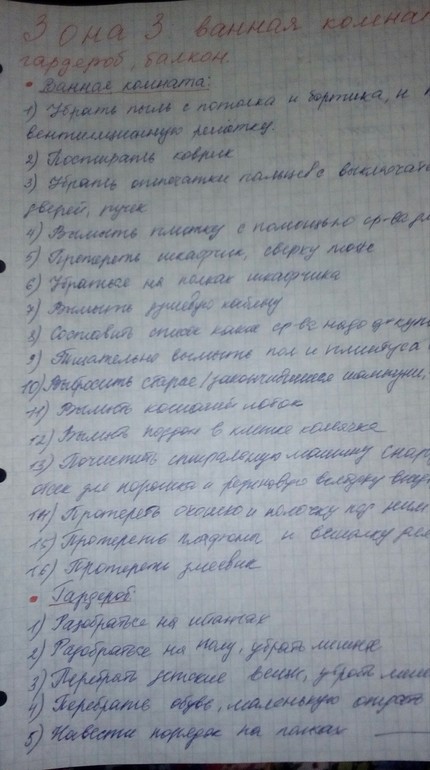 Зона 3 ванная комна
гардероб, балкон.
• Ванная комната:
1) Убрать пыль с потолка и бортика, и
вентиляционную решётку.
2) Постирать коврик
3) Убрать отпечатки пальцев с выключат
дверей, ручек
4) Вымыть плитку с помощью ср-ва
5) Протереть шкафчик, сверху тоже
6) Убраться на полках шкафчика
7) Вымыть душевую кабину
8) Составить список какие ср-ва надо докуп
9) Тщательно вымыть пол и плинтуса
10) Выбросить старые/закончившиеся шампуни,
11) Вымыть кошачий лоток
12) Вымыть поддон в клетке
13) Почистить стиральную машину снару
отсек для порошка и резиновую вкладку внут
14) Протереть окошко и полочку под ним
15) Протереть плафоны и вешалку
16) Протереть змеевик
• Гардероб
1) Разобраться на штангах
2) Разобраться на полу, убрать лишнее
3) Перебрать детские вещи, убрать лиш
4) Перебрать обувь, маленькую отдать
5) Навести порядок на полках